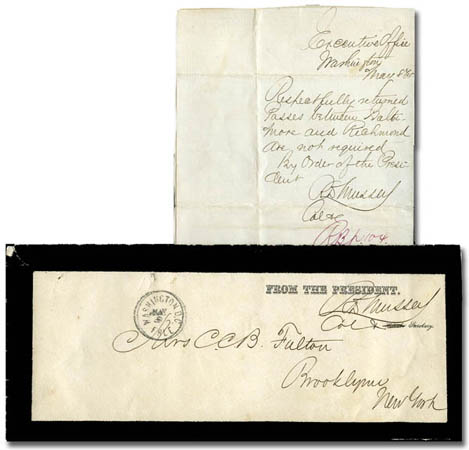 Executive Office
Washington
May 8/65
Respectfully returned
Passes between Balti-
more and Richmond
are not required
By Order of the Presi-
dent
R.D. Mussey
Col &c
FROM THE PRESIDENT.
R.D. Mussey
Col & Secretary.
WASHINGTON D.C.
MAY
Mrs C.C.B. Fulton
Brooklynn
New York